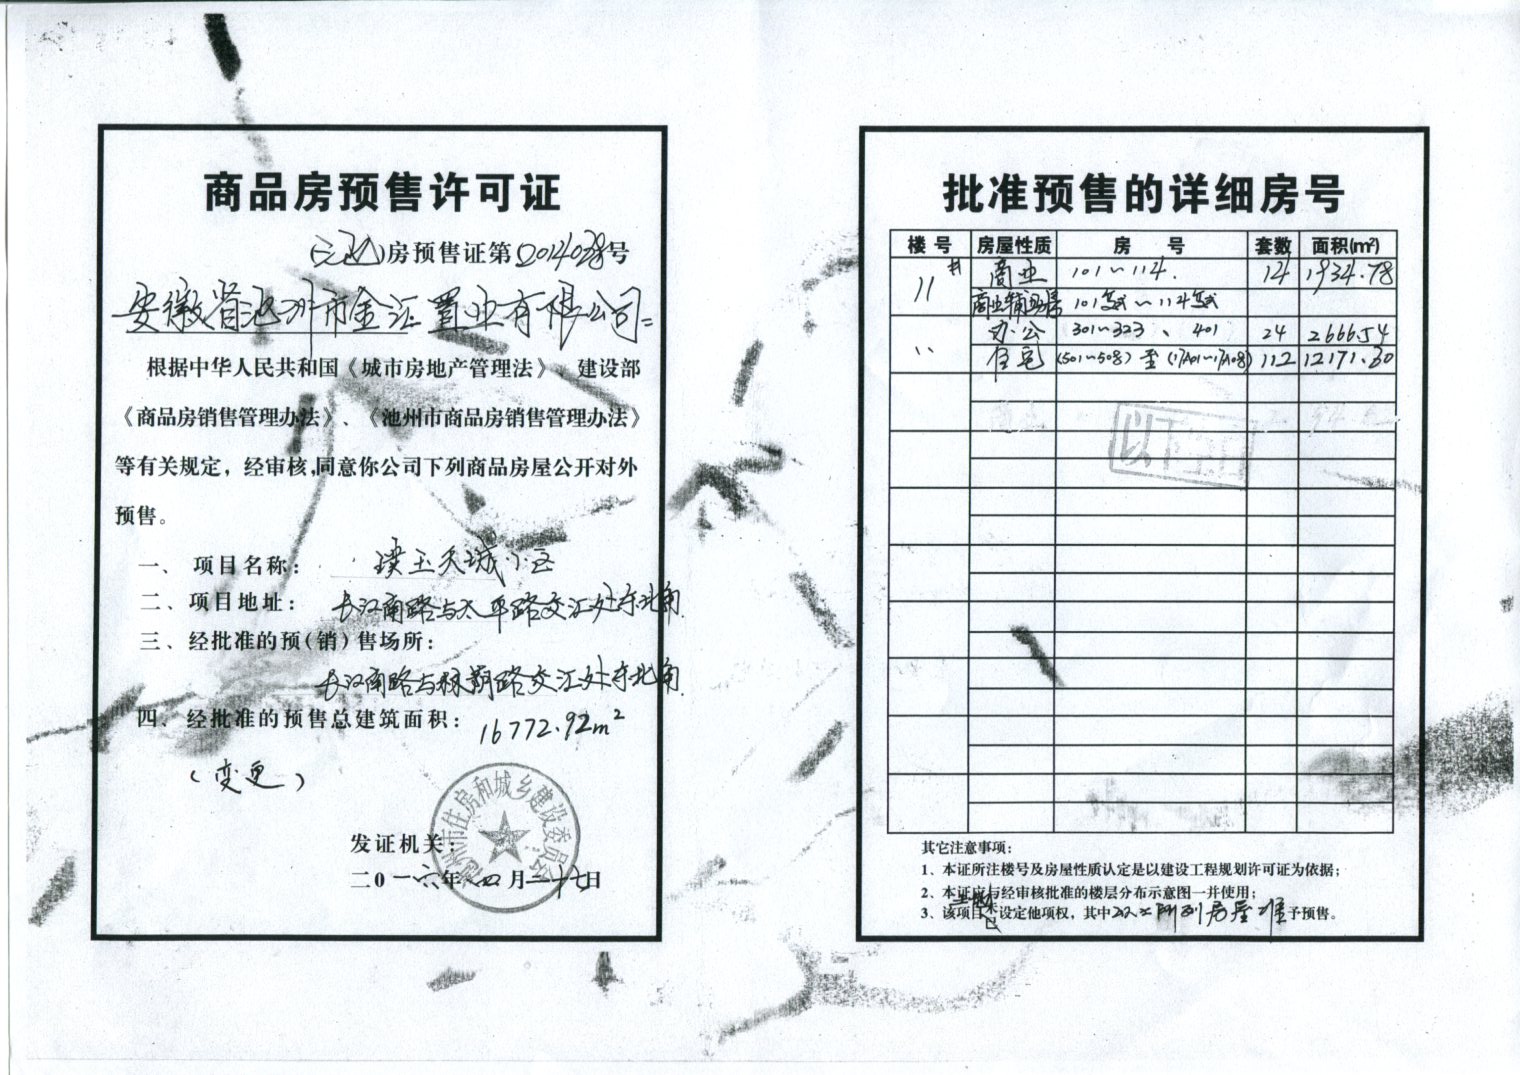 商品房预售许可证
房预售证第2014028号
安徽省池州市金汇置业有限公司:
根据中华人民共和国《城市房地产管理法》、建设部
《商品房销售管理办法》、《池州市商品房销售管理办法》
等有关规定，经审核,同意你公司下列商品房屋公开对外
预售。
一、项目名称: 璞玉天城小区
二、项目地址: 长江南路与太平路交汇处东北角
三、经批准的预(销)售场所:
长江南路与 路交汇处东北角
四、经批准的预售总建筑面积: 16772.92m²
(变更)
发证机关:
池州市住房和城乡建设委员会
二0一六年四月二十七日
批准预售的详细房号
楼号 房屋性质 房号 套数 面积(m²)
11# 商业 101~114. 14 1934.78
商业辅助房 101复式~114复式
〃 办公 301~323、401 24 2666.54
住宅 (501~508)至(17A01~17A08) 112 12171.30
以下空白
其它注意事项:
1、本证所注楼号及房屋性质认定是以建设工程规划许可证为依据;
2、本证应与经审核批准的楼层分布示意图一并使用;
3、该项目 设定他项权，其中以上所列房屋准予预售。